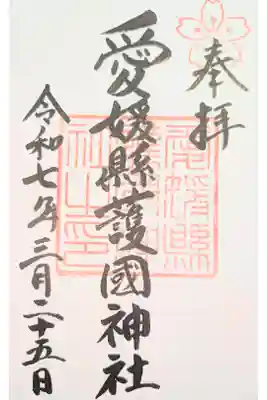 奉拝
愛媛縣護國神社
令和七年三月二十五日